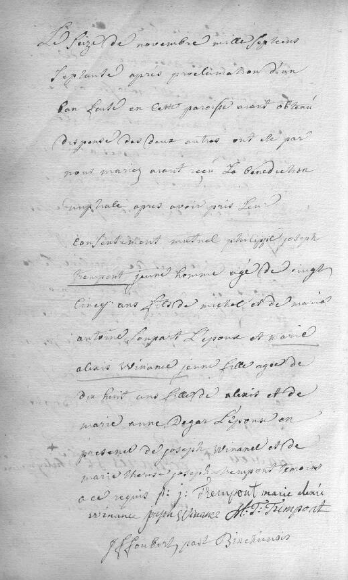 Le seize de novembre mille septcens
septante apres proclamation d'un
ban faite en cette paroisse aiant obtenu
dispense des deux autres ont été par
nous mariez aiant reçu la bénédiction
nuptiale apres avoir pris leur
consentement mutuel philippe joseph
Trempont jeune homme agé de vingt
cincq ans fils de michel et de marie
antoine soupart L'epoux et marie
alexis Winance jeune fille agee de
dix huit ans fille de alexis et de
marie anne L'epouse en
presence de joseph Winance et de
marie therese joseph trempont temoins
a ce requis p: j: Trempont marie
winance joseph Winance M: T: Trempont
past